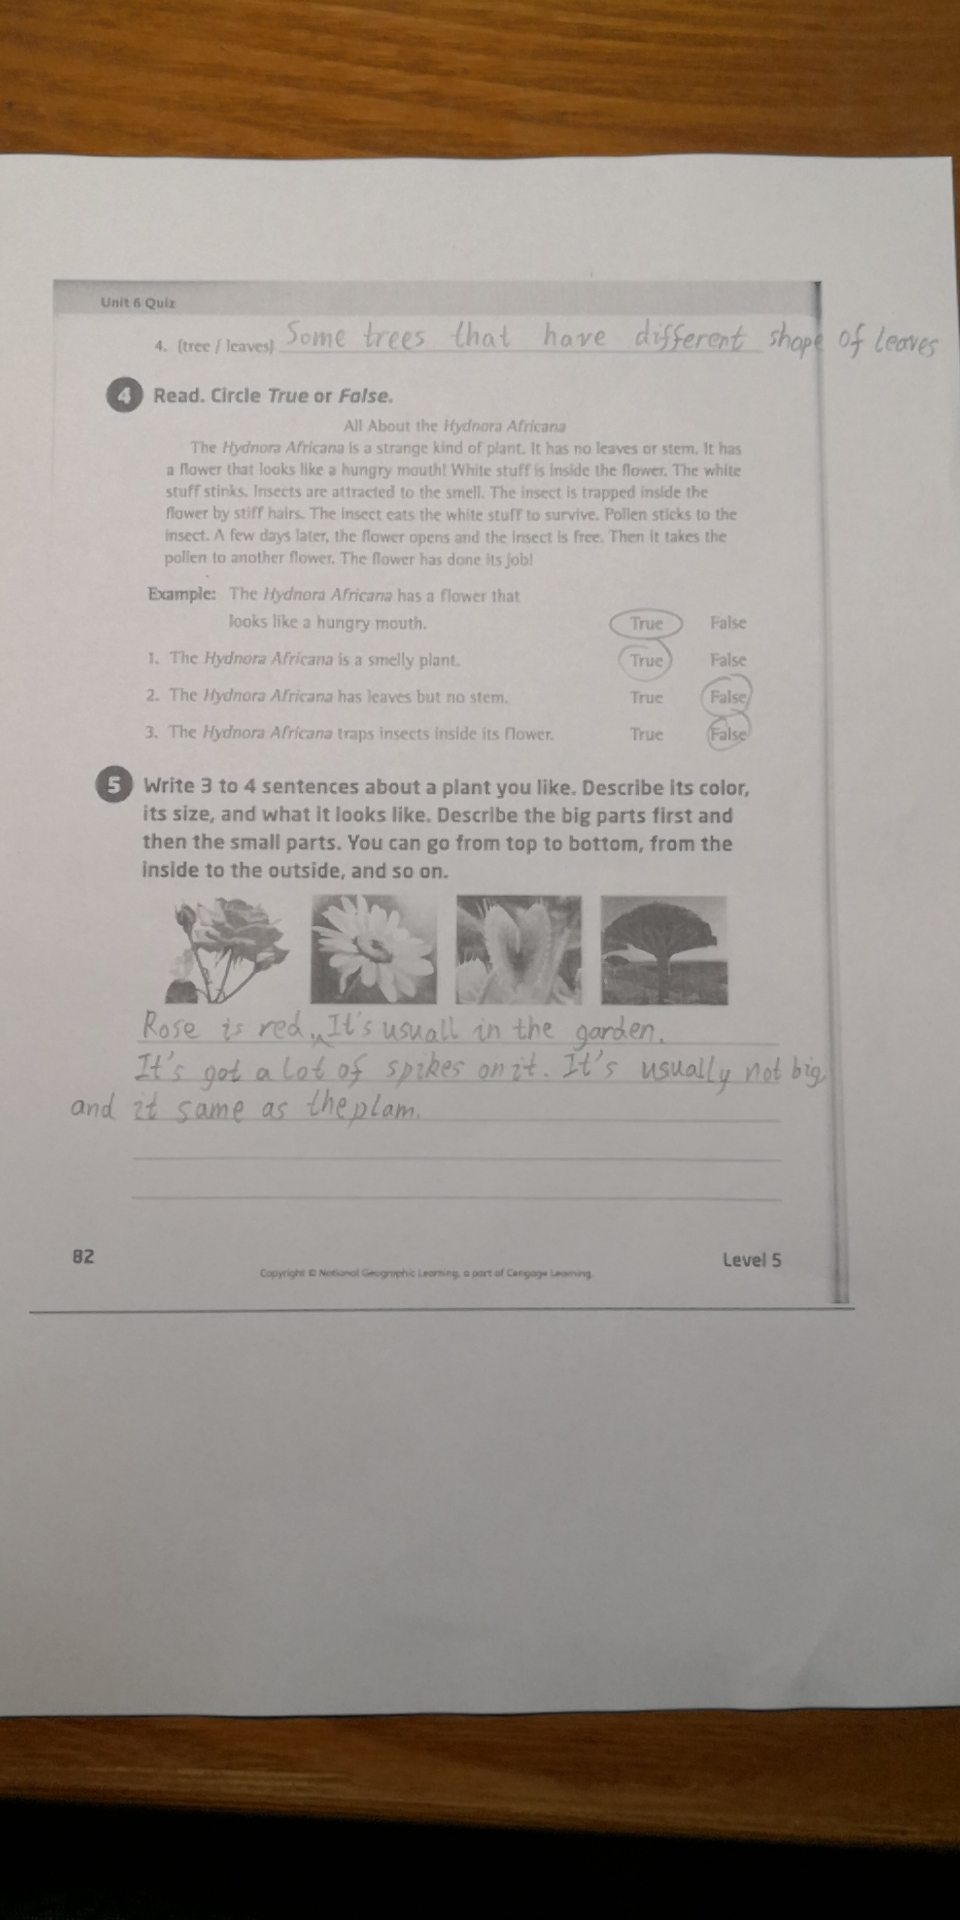 Unit 6 Quiz
4. (tree / leaves) Some trees that have different shape of leaves
4 Read. Circle True or False.
All About the Hydnora Africana
The Hydnora Africana is a strange kind of plant. It has no leaves or stem. It has
a flower that looks like a hungry mouth! White stuff is inside the flower. The white
stuff stinks. Insects are attracted to the smell. The insect is trapped inside the
flower by stiff hairs. The insect eats the white stuff to survive. Pollen sticks to the
insect. A few days later, the flower opens and the insect is free. Then it takes the
pollen to another flower. The flower has done its job!
Example: The Hydnora Africana has a flower that
looks like a hungry mouth. True False
1. The Hydnora Africana is a smelly plant. True False
2. The Hydnora Africana has leaves but no stem. True False
3. The Hydnora Africana traps insects inside its flower. True False
5 Write 3 to 4 sentences about a plant you like. Describe its color,
its size, and what it looks like. Describe the big parts first and
then the small parts. You can go from top to bottom, from the
inside to the outside, and so on.
Rose is red. It's usuall in the garden.
It's got a lot of spikes on it. It's usually not big,
and it same as the plam.
82 Level 5
Copyright © National Geographic Learning, a part of Cengage Learning.